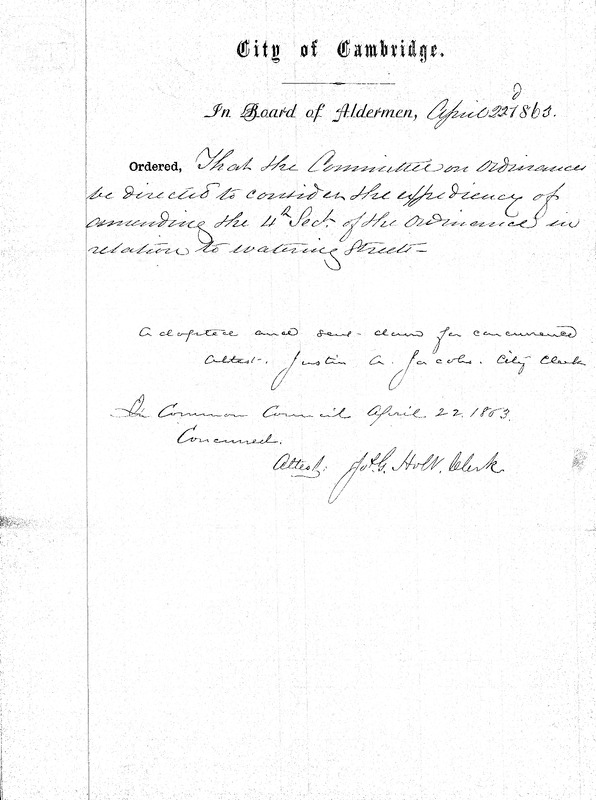 City of Cambridge.
In Board of Aldermen, April 22d 1863.
Ordered, That the Committee on Ordinances
be directed to consider the expediency of
amending the 4th Sect. of the Ordinance in
relation to watering Streets—
Adopted and sent down for concurrence
Attest. Justin A. Jacobs. City Clerk
In Common Council April 22. 1863.
Concurred.
Attest: Jos. G. Holt, Clerk